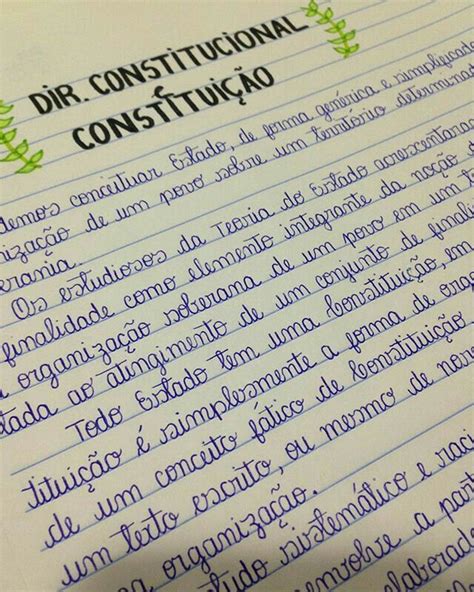 DIR. CONSTITUCIONAL
E
CONSTITUIÇÃO
demos conceituar Estado, de forma genérica e simplificada
nização de um povo sobre um território determinad
erania.
Os estudiosos da Teoria do Estado acrescentara
finalidade como elemento integrante da noção d
organização soberana de um povo em um te
tada ao atingimento de um conjunto de finali
Todo Estado tem uma Constituição, em
tituição é simplesmente a forma de org
de um conceito fático de Constituição
um texto escrito, ou mesmo de nor
a organização.
tudo sistemático e raci
senvolve a part
elaborada